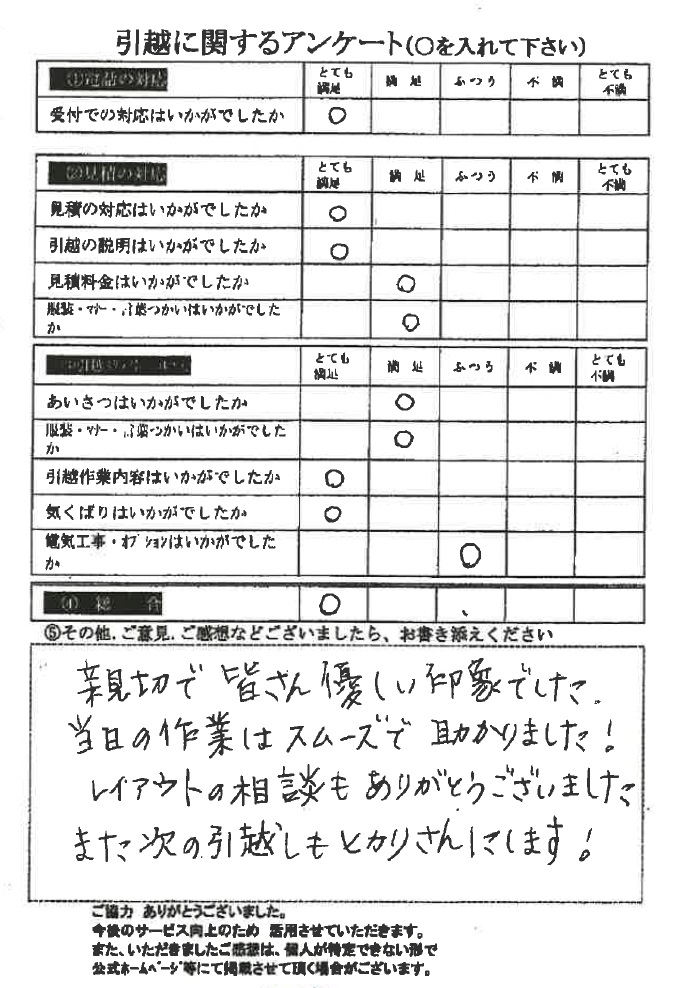 引越に関するアンケート(○を入れて下さい)
①電話の対応 とても満足 満足 ふつう 不満 とても不満
受付での対応はいかがでしたか ○
②見積の対応 とても満足 満足 ふつう 不満 とても不満
見積の対応はいかがでしたか ○
引越の説明はいかがでしたか ○
見積料金はいかがでしたか ○
服装・マナー・言葉つかいはいかがでした
か ○
とても満足 満足 ふつう 不満 とても不満
あいさつはいかがでしたか ○
服装・マナー・言葉つかいはいかがでした
か ○
引越作業内容はいかがでしたか ○
気くばりはいかがでしたか ○
電気工事・オプションはいかがでした
か ○
④ 総 合 ○
⑤その他,ご意見,ご感想などございましたら、お書き添えください
親切で皆さん優しい印象でした.
当日の作業はスムーズで助かりました!
レイアウトの相談もありがとうございました
また次の引越しもヒカリさんにします!
ご協力 ありがとうございました。
今後のサービス向上のため 活用させていただきます。
また、いただきましたご感想は、個人が特定できない形で
公式ホームページ等にて掲載させて頂く場合がございます。